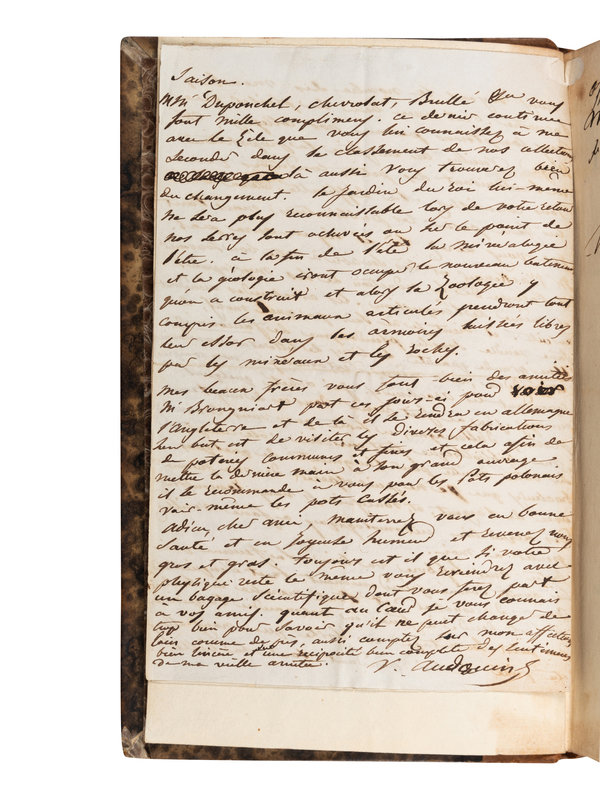 saison.
MM. Duponchel, chevrolat, Brullé &ca vous
font mille complimens. ce dernier continue
avec le zèle que vous lui connaissez à me
seconder dans le classement de nos collections
là aussi vous trouverez bien
du changement. le Jardin du Roi lui-même
ne sera plus reconnaissable lors de votre retour
nos serres sont achevées ou sur le point de
l'être. à la fin de l'été la minéralogie
et la géologie iront occuper le nouveau batiment
qu'on a construit et alors la Zoologie y
compris les animaux articulés prendront tout
leur essor dans les armoires laissées libres
par les mineraux et les roches.
mes beaux frères vous font bien des amitiés
M. Brongniart part ces jours-ci pour
l'angleterre et de là il se rendra en allemagne
son but est de visiter les diverses fabrications
de poteries communes et fines et cela afin de
mettre la dernière main à son grand ouvrage
il se recommande à vous pour les pots polonais
voir même les pots cassés.
adieu cher ami maintenez vous en bonne
santé et en joyeuse humeur et revenez nous
gros et gras. toujours est il que si votre
physique reste le même vous reviendrez avec
un bagage scientifique dont vous ferez part
à vos amis. quant au cœur je vous connais
trop bien pour savoir qu'il ne peut changer de
loin comme de près, aussi comptez sur mon affection
bien sincère et une réciprocité bien complète des sentimens
de ma vieille amitié.
V. Audouin